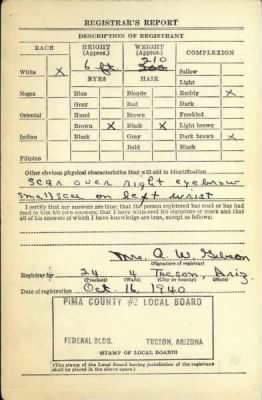 REGISTRAR'S REPORT
DESCRIPTION OF REGISTRANT
RACE HEIGHT (Approx.) WEIGHT (Approx.) COMPLEXION
White X 6 ft 210 Sallow
EYES HAIR Light
Negro Blue Blonde Ruddy X
Gray Red Dark
Oriental Hazel Brown Freckled
Brown X Black X Light brown
Indian X Black Gray Dark brown X
Bald Black
Filipino
Other obvious physical characteristics that will aid in identification
Scar over right eyebrow
small scar on left wrist
I certify that my answers are true; that the person registered has read or has had
read to him his own answers; that I have witnessed his signature or mark and that
all of his answers of which I have knowledge are true, except as follows:
Mrs. A. W. Gibson
(Signature of registrar)
Registrar for 24 4 Tucson, Ariz
(Precinct) (Ward) (City or county) (State)
Date of registration Oct. 16, 1940
PIMA COUNTY #2 LOCAL BOARD
FEDERAL BLDG. TUCSON, ARIZONA
STAMP OF LOCAL BOARD
(The stamp of the Local Board having jurisdiction of the registrant
shall be placed in the above space.)